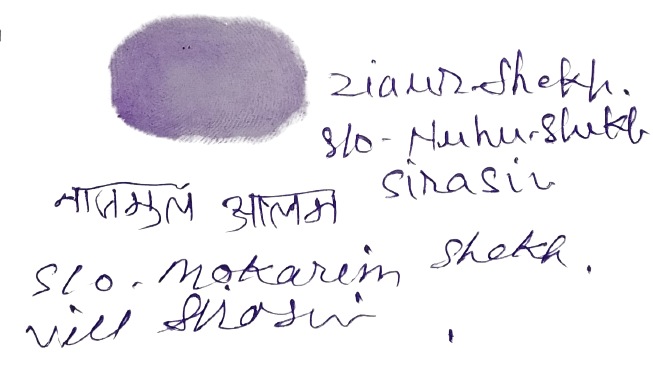 ziaur Shekh.
S/o - Nuhu Shekh
Sirasin
नाजमुल आलम
S/o. Mokarim Shekh.
vill Sirasin